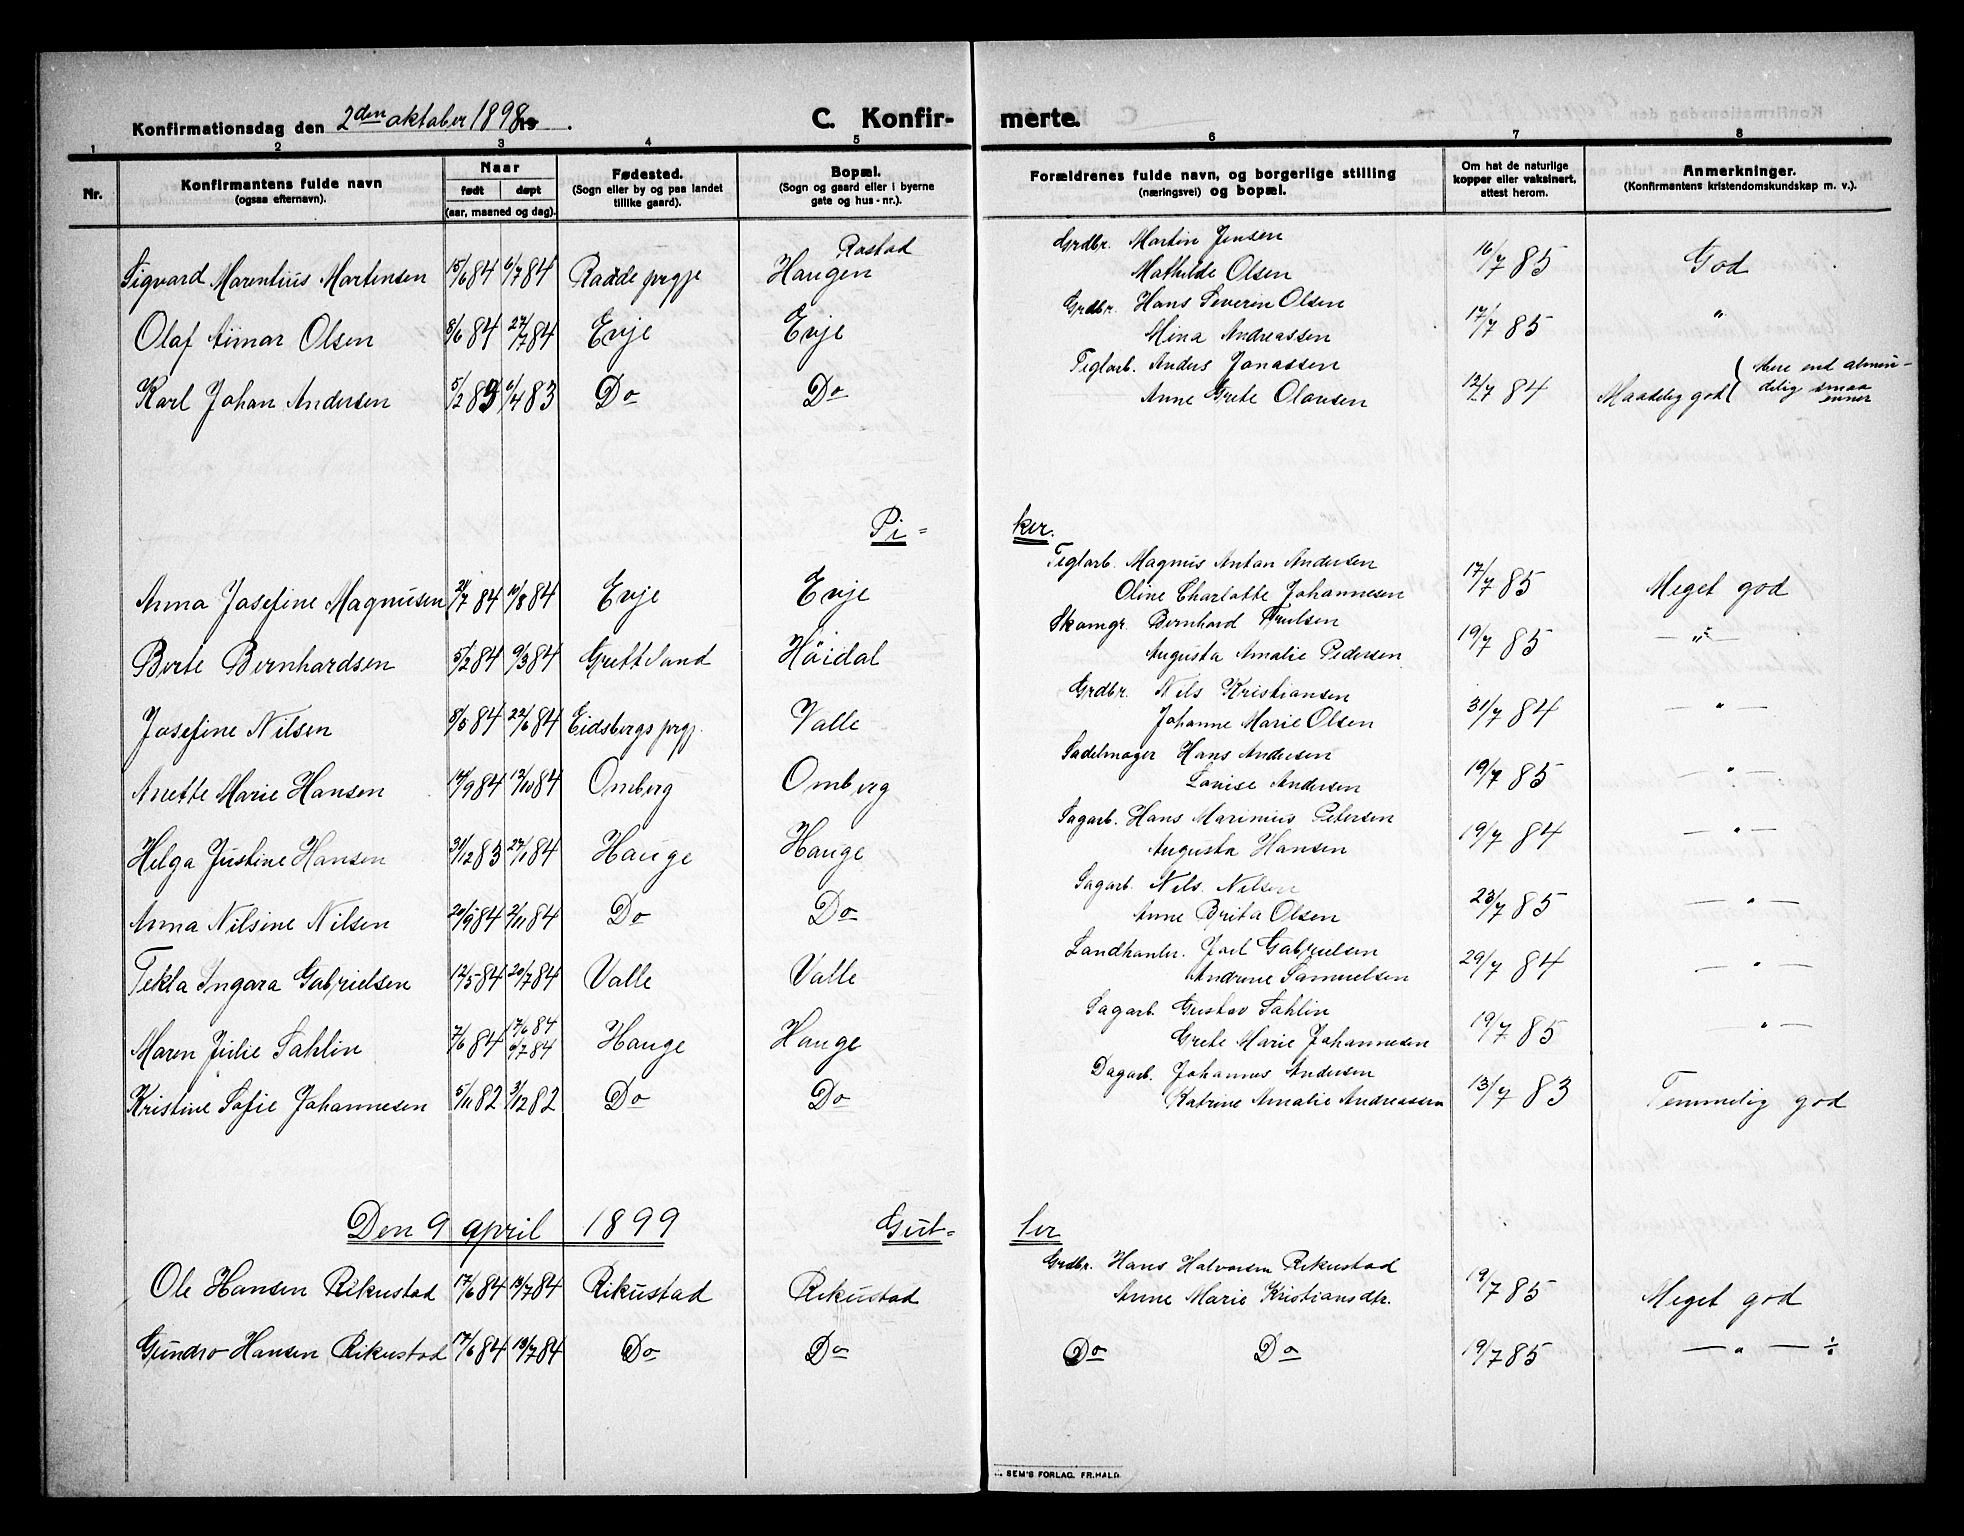 Konfirmationsdag den 2den oktober 1898 19 .
C. Konfir- merte.
1 2 3 4 5 6 7 8
Nr.
Konfirmantens fulde navn
(ogsaa efternavn).
Naar
født døpt
(aar, maaned og dag).
Fødested.
(Sogn eller by og paa landet
tillike gaard).
Bopæl.
(Sogn og gaard eller i byerne
gate og hus-nr.).
Forældrenes fulde navn, og borgerlige stilling
(næringsvei) og bopæl.
Om hat de naturlige
kopper eller vaksinert,
attest herom.
Anmerkninger.
(Konfirmantens kristendomskundskap m. v.).
Rostad Grdbr. Martin Jensen
Sigvard Marentius Martensen 15/6 84 6/7 84 Radde prgje Haugen Mathilde Olsen 16/7 85 God
Grdbr. Hans Severin Olsen
Olaf Aimar Olsen 8/6 84 27/7 84 Evje Evje Mina Andreassen 17/7 85 "
Teglarb. Anders Jonassen
Karl Johan Andersen 5/2 83 6/4 83 Do Do Anne Grete Olausen 12/7 84 Maadelig god ( Mere end almin-
delig smaa
evner
Pi- ker.
Teglarb. Magnus Anton Andersen
Anna Josefine Magnusen 24/7 84 10/8 84 Evje Evje Oline Charlotte Johannesen 17/7 85 Meget god
Skomgr. Bernhard Truelsen
Berte Bernhardsen 5/2 84 9/3 84 Grettland Høidal Augusta Amalie Pedersen 19/7 85 — " —
Grdbr. Nils Kristiansen
Josefine Nilsen 8/5 84 22/6 84 Eidsbergs prgj. Valle Johanne Marie Olsen 31/7 84 — " —
Sadelmager Hans Andersen
Anette Marie Hansen 14/9 84 12/10 84 Omberg Omberg Lovise Andersen 19/7 85 — " —
Sagarb. Hans Marinius Petersen
Helga Justine Hansen 31/12 83 27/1 84 Hauge Hauge Augusta Hansen 19/7 84 — " —
Sagarb. Nils Nilsen
Anna Nilsine Nilsen 20/9 84 2/11 84 Do Do Anne Brita Olsen 23/7 85 — " —
Landhanler. Joel Gabrielsen
Tekla Ingara Gabrielsen 12/5 84 20/7 84 Valle Valle Andrine Samuelsen 29/7 84 — " —
Sagarb. Gustav Sahlin
Maren Julie Sahlin 7/6 84 17/6 84 6/7 84 Hauge Hauge Grete Marie Johannesen 19/7 85 — " —
Dagarb. Johannes Andersen
Kristine Sofie Johannesen 5/11 82 3/12 82 Do Do Katrine Amalie Andreassen 13/7 83 Temmelig god
Den 9 april 1899 Gut- ter
Grdbr. Hans Halvorsen Rikustad
Ole Hansen Rikustad 17/6 84 13/7 84 Rikustad Rikustad Anne Marie Kristiansdtr. 19/7 85 Meget god
Gundro Hansen Rikustad 17/6 84 13/7 84 Do Do Do Do 19/7 85 — " — ÷
SEM'S FORLAG, FR.HALD.